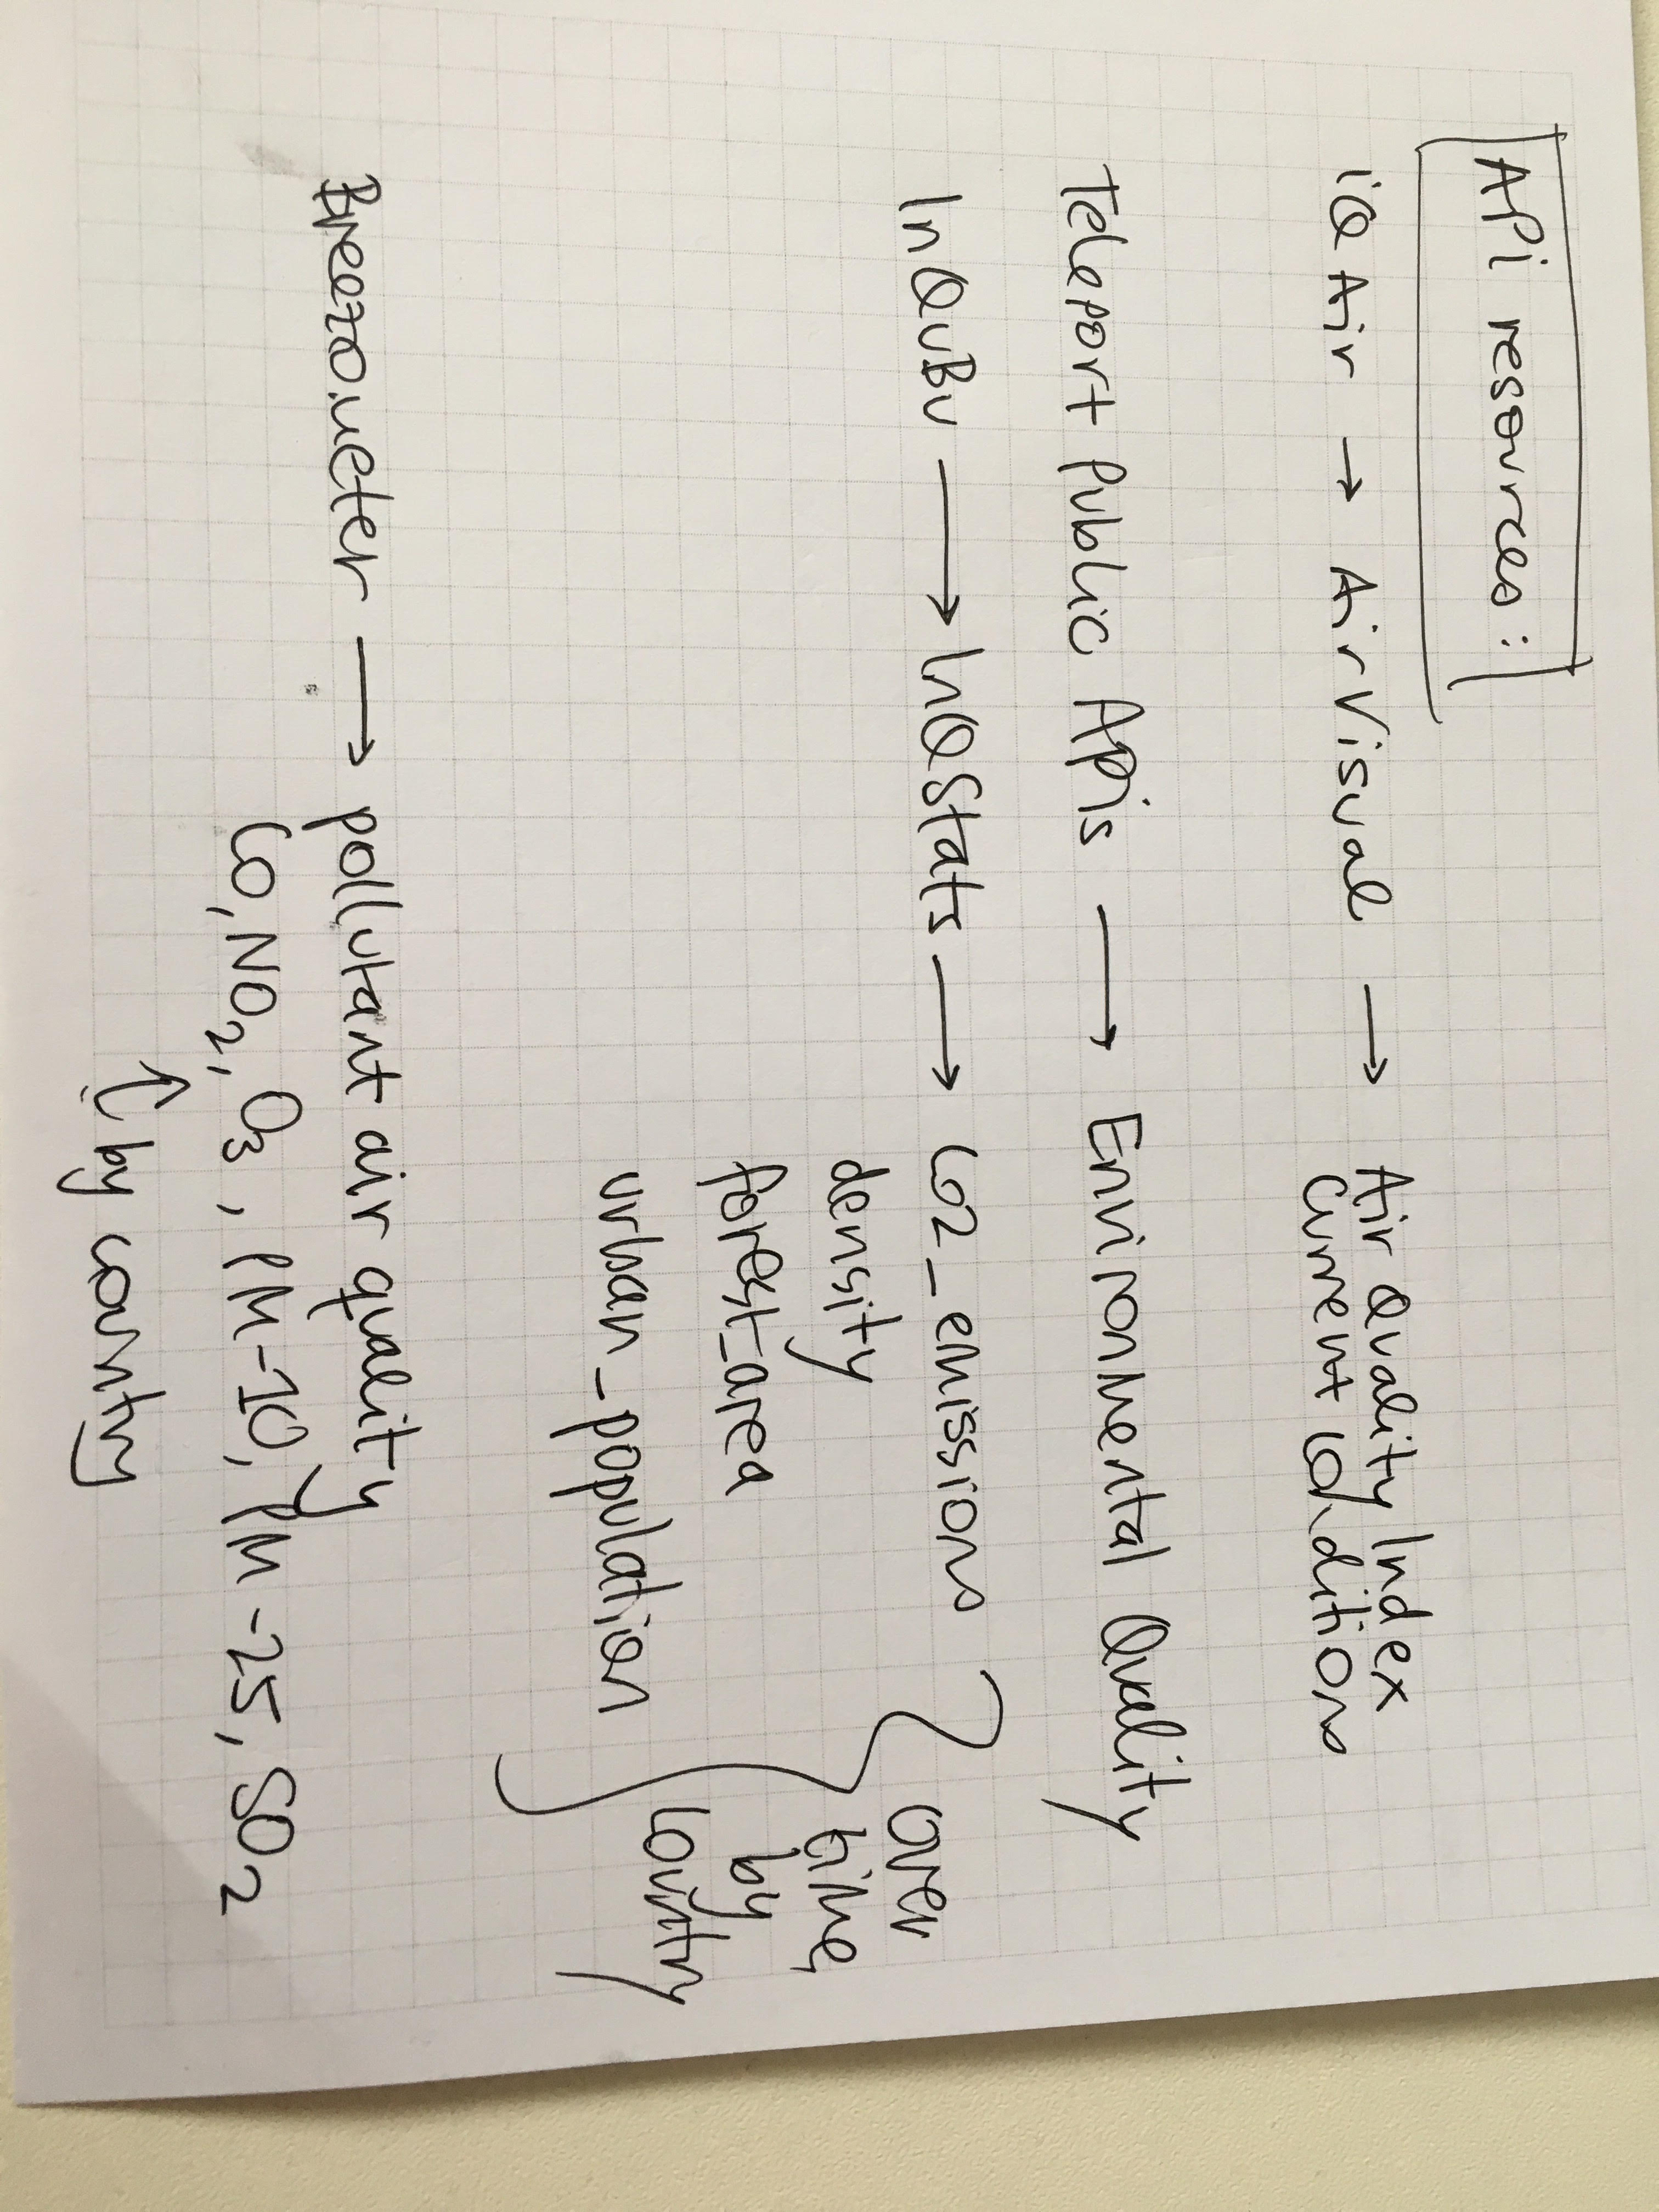 APi resources:
iQ Air → AirVisual → Air Quality Index
Current Conditions
Teleport Public APis → Environmental Quality
InQuBu → InQStats → CO2_emissions
density
forest_area
urban_population
over
time,
by
country
Breezometer → pollutant air quality
CO, NO2, O3, PM-10, PM-25, SO2
↑ by country